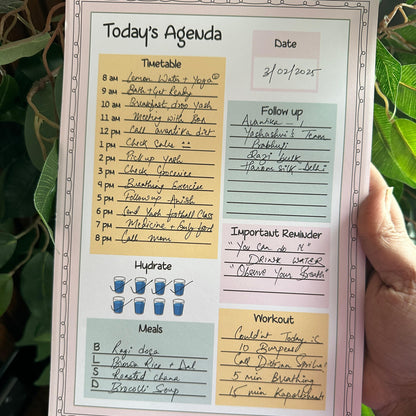 Today's Agenda
Date
3/02/2025
Timetable
8 am Lemon Water + Yoga
9 am Bath + Get Ready
10 am Breakfast, drop Yash
11 am Meeting with
12 pm Call avantika diet
1 pm Check Calls
2 pm Pick up Yash
3 pm Check Groceries
4 pm Breathing Exercise
5 pm Follow up
6 pm Send Yash football Class
7 pm Medicine + food
8 pm Call mom
Follow up
Avantika
Yashashvi's Team
Prabhuti
bulk
Silk - Delhi
Important Reminder
"You can do it"
DRINK WATER
"Observe Your Breath"
Hydrate
Meals
B Ragi dosa
L Brown Rice + Dal
S Roasted Chana
D Brocolli Soup
Workout
Couldn't Today is
10 Burpees
Call
5 min Breathing
15 min Kapalbhati